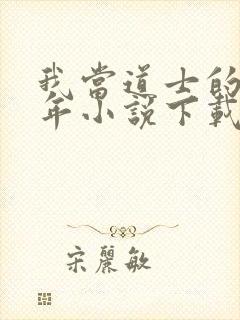 我當道士的
年小說下載
宋麗敏